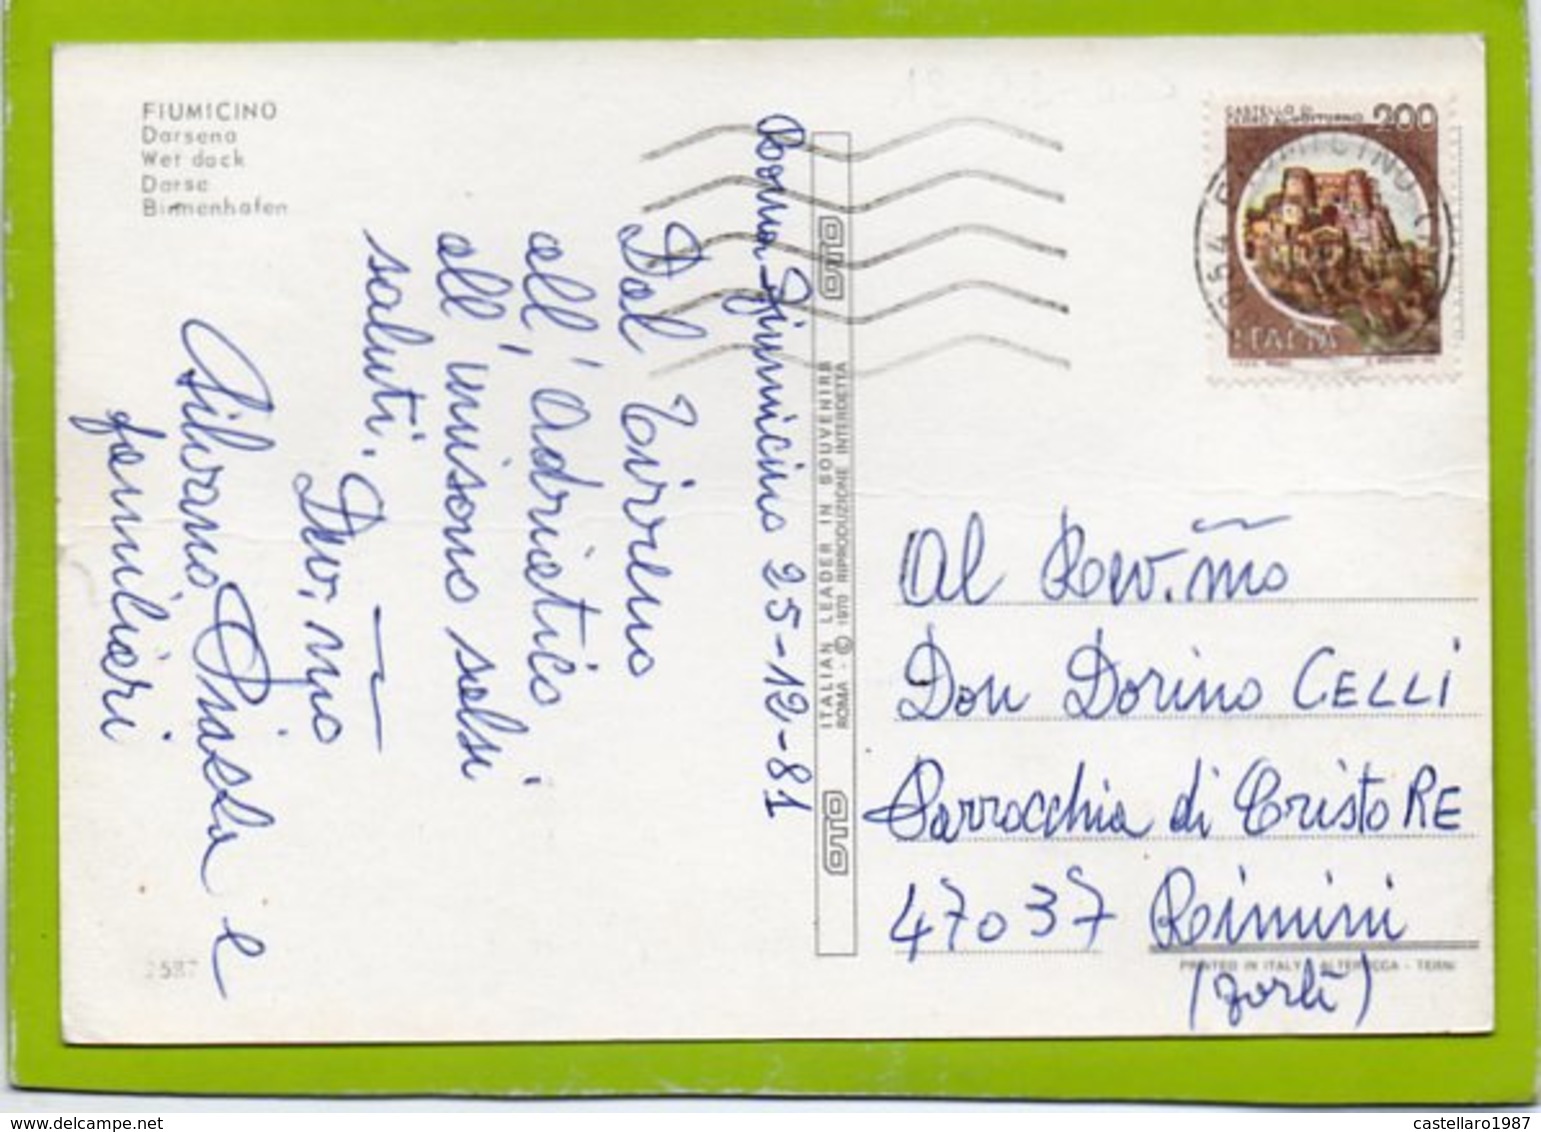 FIUMICINO
Darsena
Wet dock
Darse
Binnenhafen
CASTELLO DI
200
ITALIA
Roma-Fiumicino 25-12-81
Dal Tirreno
all'Adriatico
all'unisono solsi
saluti.
Dev.mo
Silvano
e
familiari
OTO
ITALIAN LEADER IN SOUVENIRS
ROMA - © 1970 RIPRODUZIONE INTERDETTA
OTO
Al Rev.mo
Don Dorino CELLI
Parrocchia di Cristo RE
47037 Rimini
(Forlì)
PRINTED IN ITALY - ALTEROCCA - TERNI
2587
castellaro1987